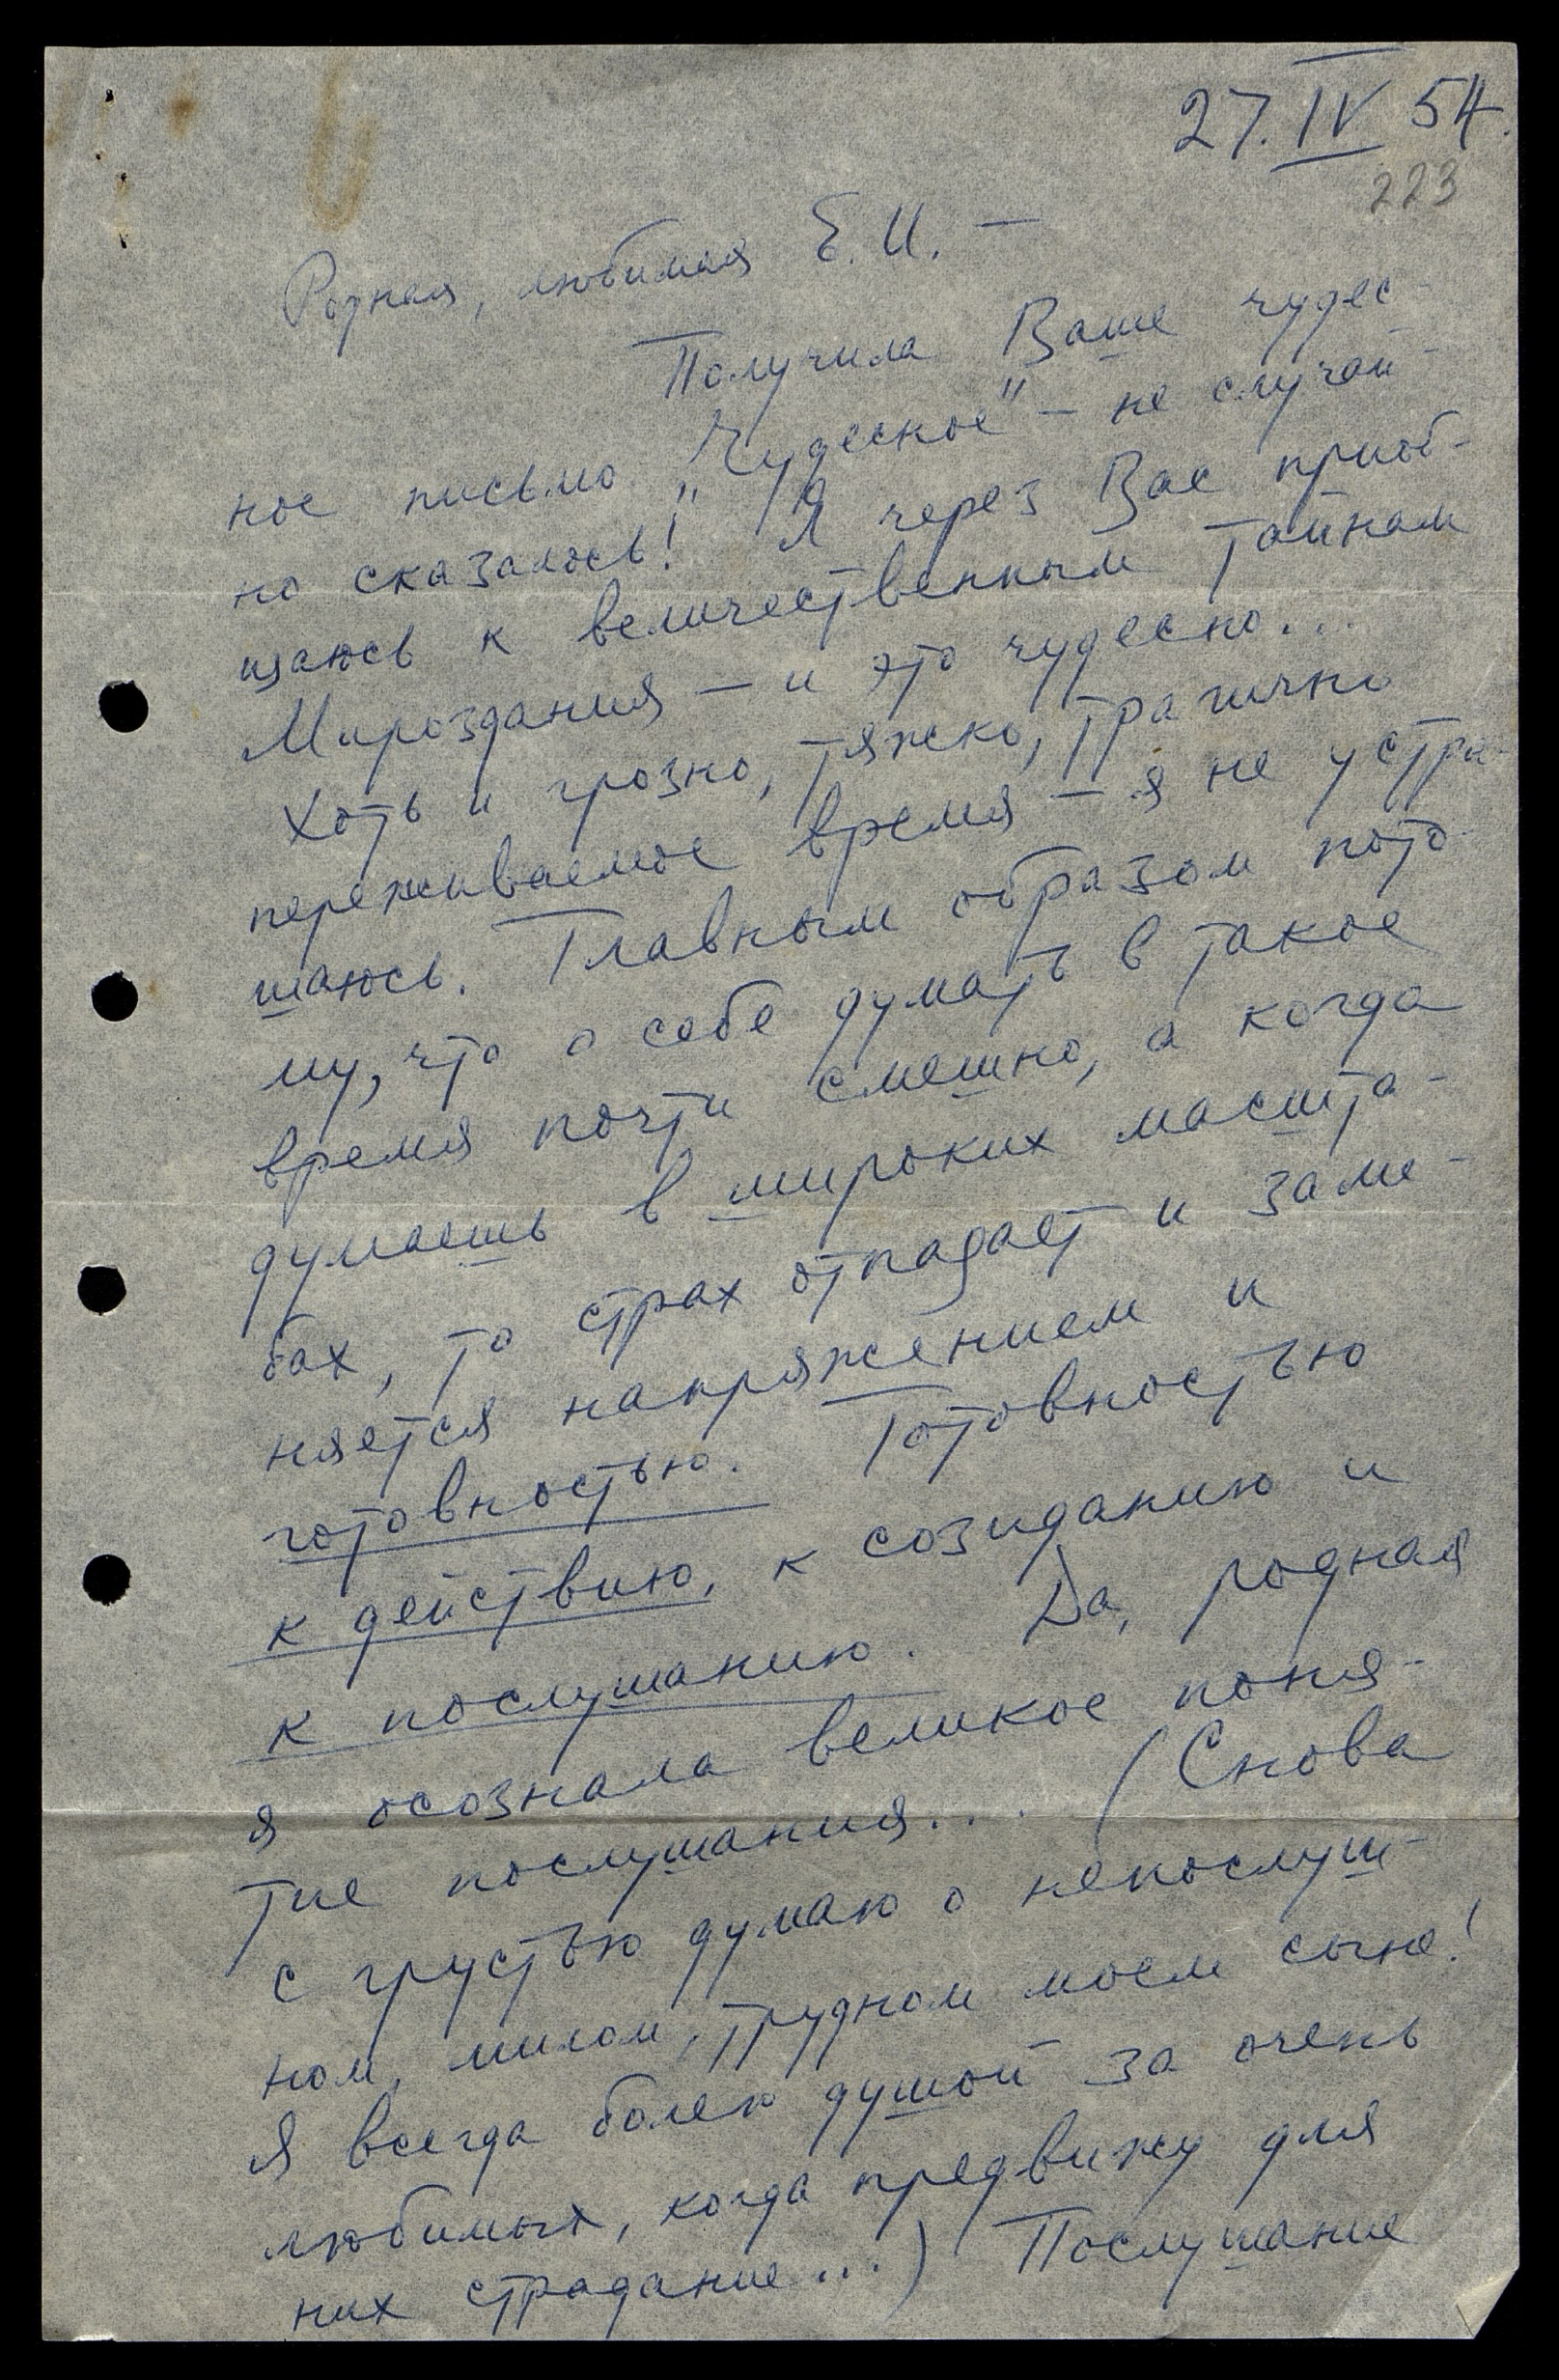 27. IV 54.
223
Родная, любимая Е. И. —
Получила Ваше чудес-
ное письмо. „Чудесное" — не случай-
но сказалось! Я через Вас приоб-
щаюсь к величественным тайнам
Мироздания — и это чудесно...
Хоть и грозно, тяжко, трагично
переживаемое время — я не устра-
шаюсь. Главным образом пото-
му, что о себе думать в такое
время почти смешно, а когда
думаешь в широких масшта-
бах, то страх отпадает и заме-
няется напряжением и
готовностью. Готовностью
к действию, к созиданию и
к послушанию. Да, родная
я осознала великое поня-
тие послушания... (Снова
с грустью думаю о непослуш-
ном, милом, трудном моем сыне!
Я всегда болею душой за очень
любимых, когда предвижу для
них страдание...) Послушание